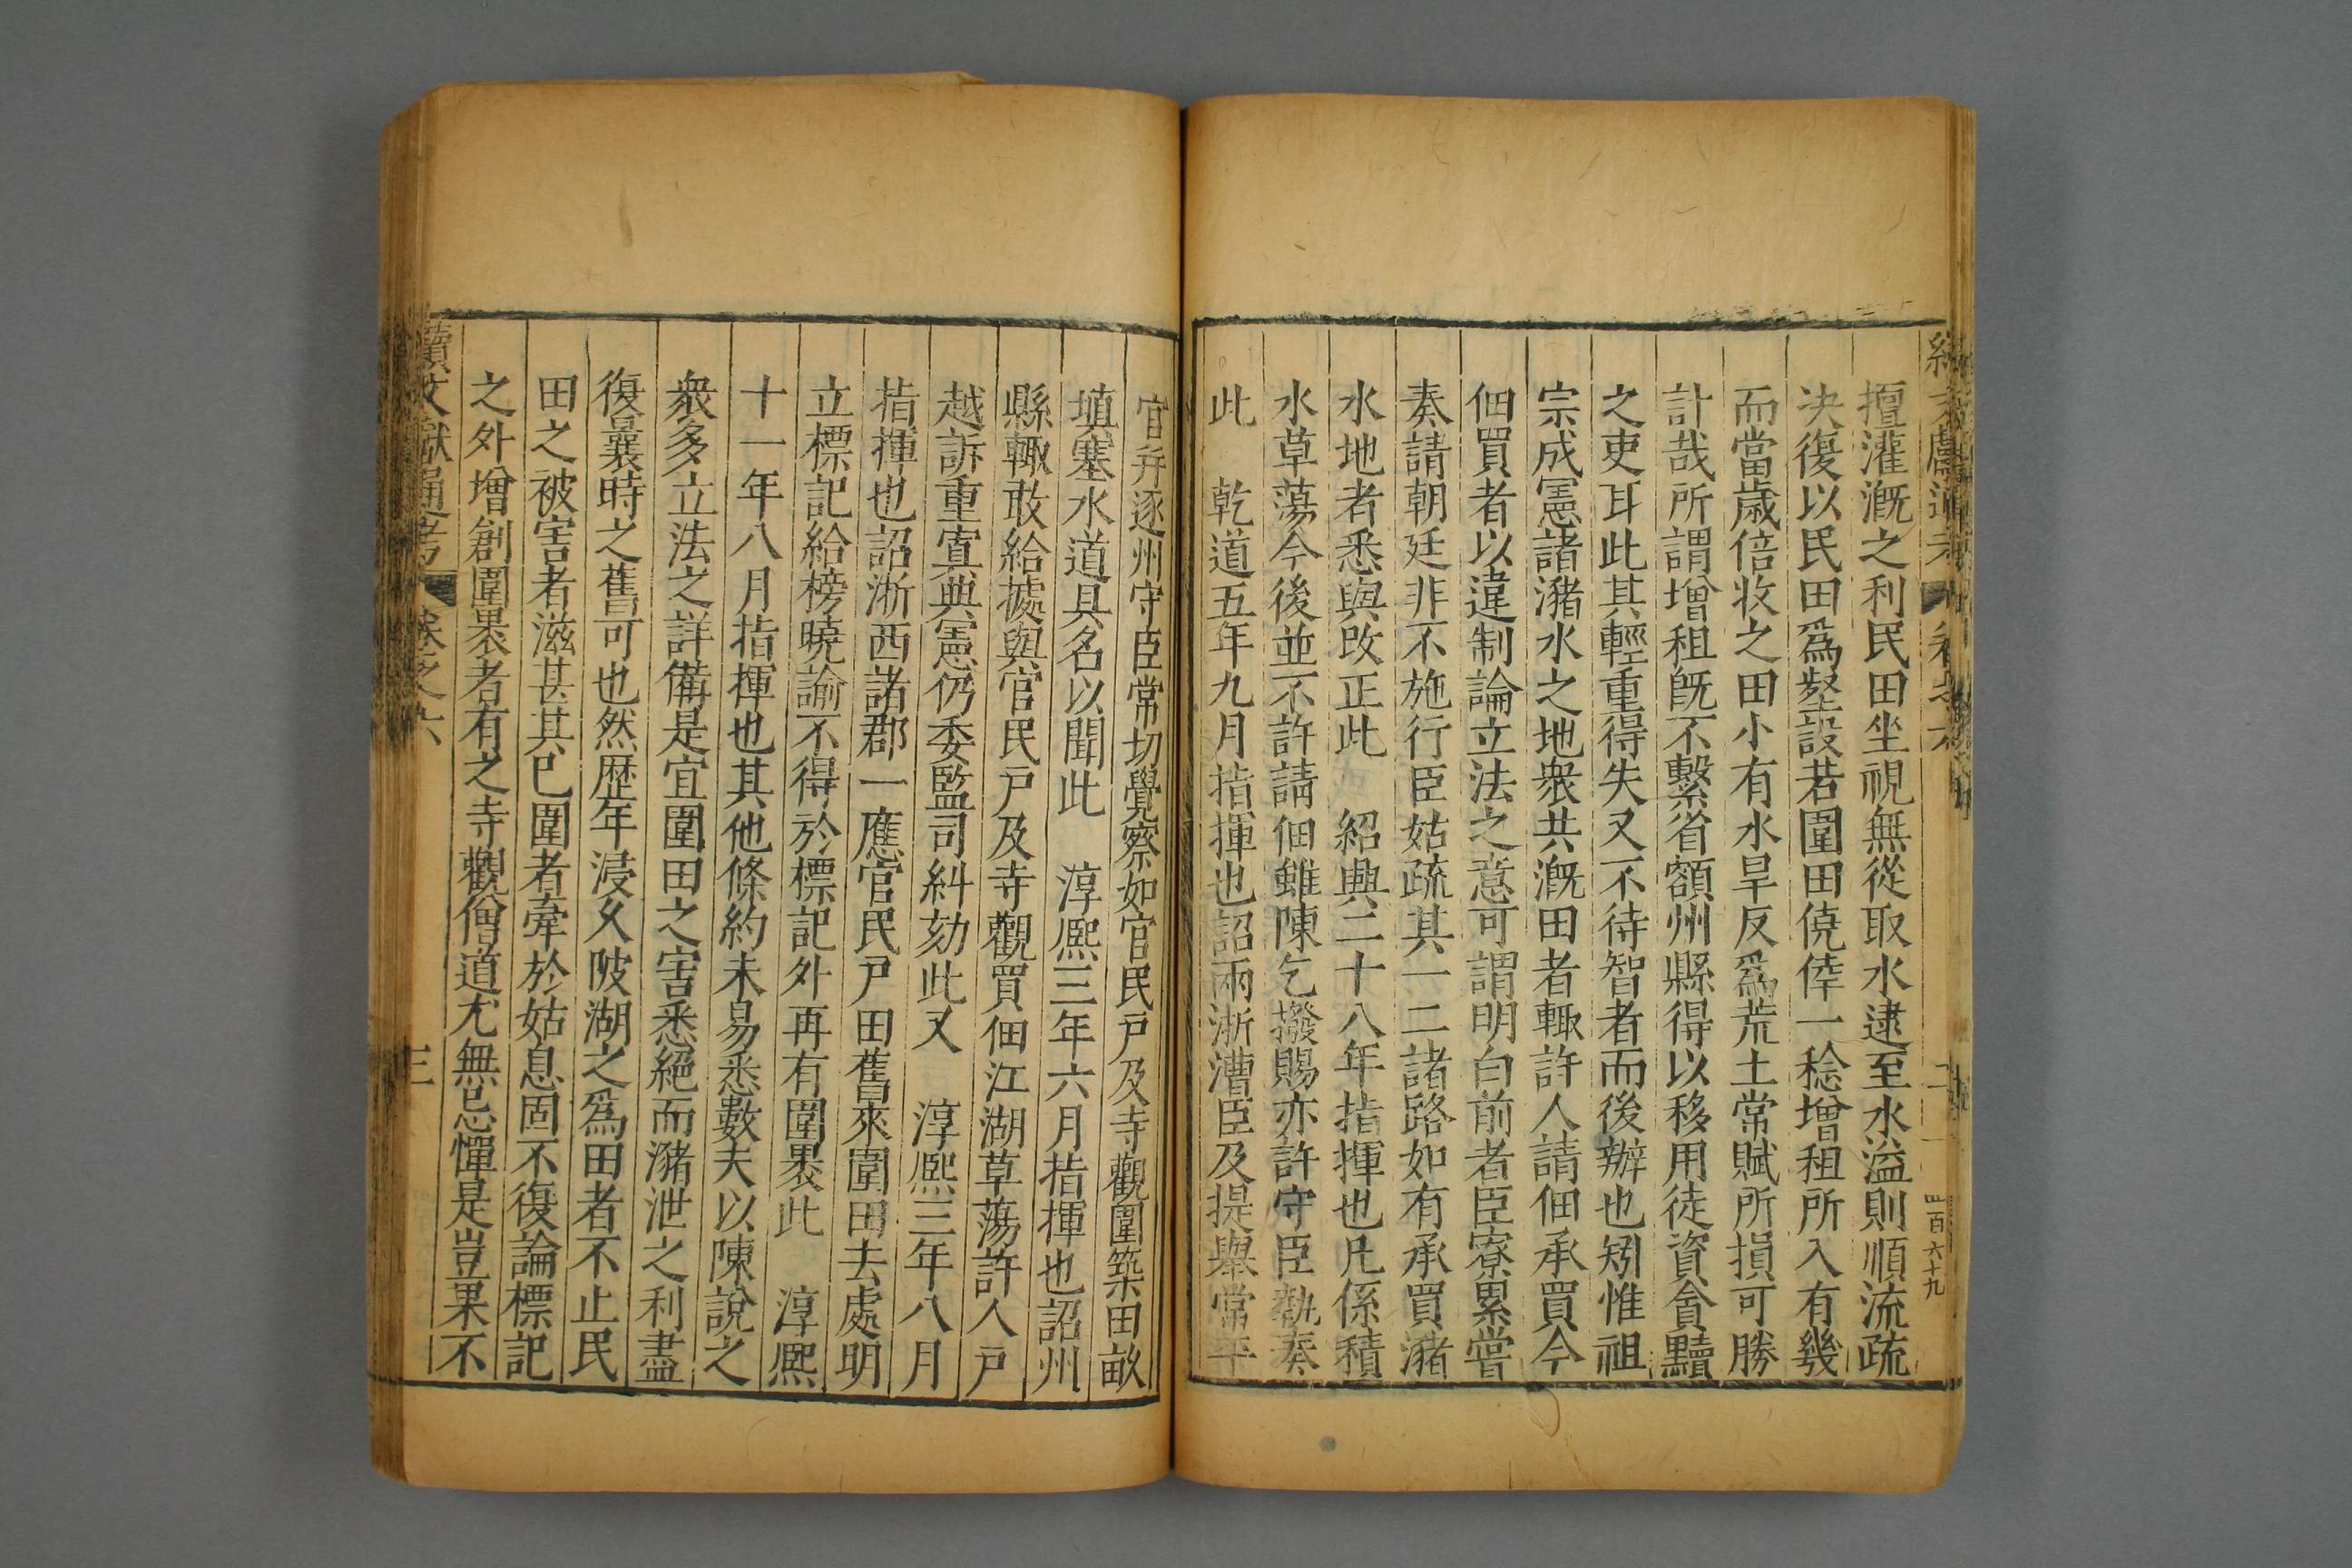 擅灌溉之利民田坐視無從取水逮至水溢則順流疏
决復以民田爲壑設若圍田僥倖一稔增租所入有幾
而當歲倍收之田小有水旱反爲荒土常賦所損可勝
計哉所謂增租旣不繫省額州縣得以移用徒資貪黷
之吏耳此其輕重得失又不待智者而後辦也矧惟祖
宗成憲諸瀦水之地衆共溉田者輙許人請佃承買今
佃買者以違制論立法之意可謂明白前者臣寮累嘗
奏請朝廷非不施行臣姑疏其一二諸路如有承買瀦
水地者悉與改正此 紹興二十八年指揮也凡係積
水草蕩今後並不許請佃雖陳乞撥賜亦許守臣執奏
此 乾道五年九月指揮也詔兩淅漕臣及提舉常平
官弁逐州守臣常切覺察如官民戶及寺觀圍築田畝
填塞水道具名以聞此 淳熈三年六月指揮也詔州
縣輙敢給據與官民戶及寺觀買佃江湖草蕩許人戶
越訴重寘典憲仍委監司糾劾此又 淳熈三年八月
指揮也詔淅西諸郡一應官民戶田舊來圍田去處明
立標記給榜曉諭不得於標記外再有圍褁此 淳熈
十一年八月指揮也其他條約未易悉數夫以陳說之
衆多立法之詳備是宜圍田之害悉絕而瀦泄之利盡
復曩時之舊可也然歷年浸久陂湖之爲田者不止民
田之被害者滋甚其已圍者牽於姑息固不復論標記
之外增創圍褁者有之寺觀僧道尤無忌憚是豈果不
續文獻通考 卷之六 三
續文獻通考 卷之六 二 四百六十九